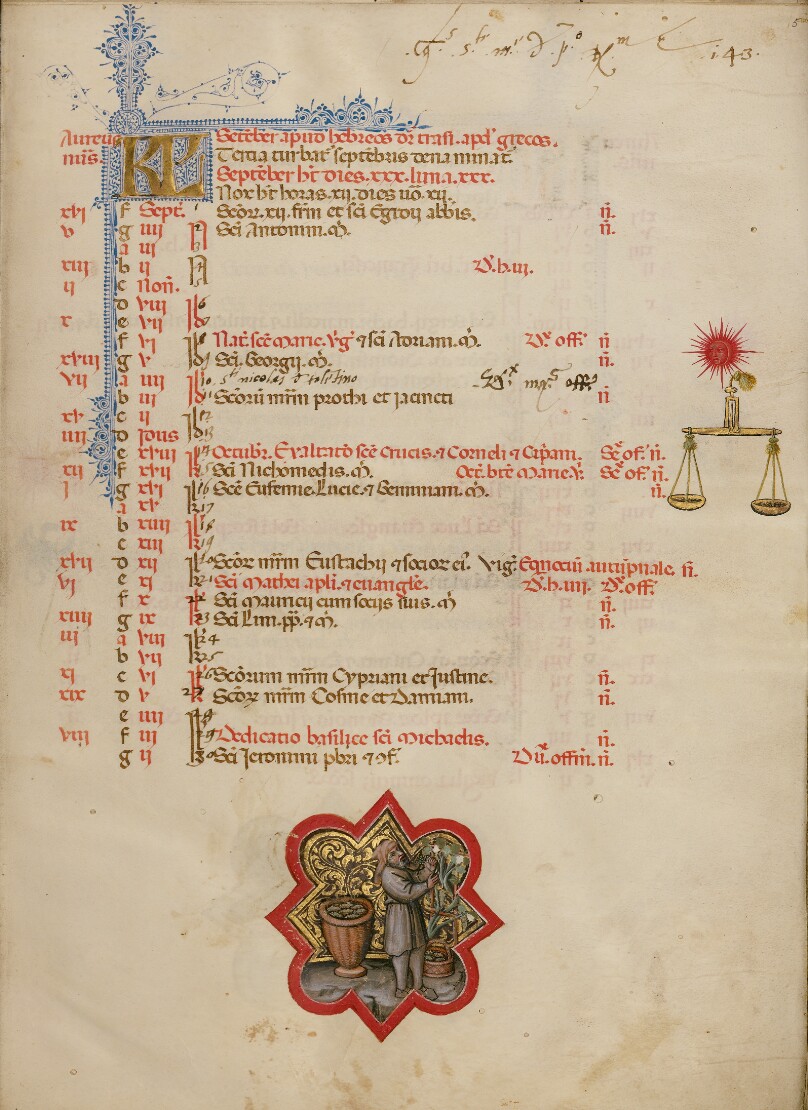 143.
Aureus Setēber apud hebreos dr̄ trasi. apd' grecos.
nūs. KL Tertia turbat septēbris dena minat.
September ht̄ dies. xxx. luna. xxx.
Nox ht̄ horas. xij. dies uō. xij.
xvi f Sept. Scōr. xij. frm̄ et sci Egidij abb̄is. ij̄.
v g iiii Sci Antonini. m̄. ij̄.
a iii
xiii b ii D. h. iii.
ii c Non̄.
D viii 6
x e vii
f vi Nat' sce Marie. v̄g' et sci Adriani. m̄. Dx̄ off' ij̄
xviii g v Sci Georgii. m̄. ij̄.
vii a iiii 10. sti nicolai d tolētino
b iii Scōrū mm̄ prothi et iacincti ij̄
xv c ii 12
iiii D Idus 13
e xviii Octubr̄. Exaltatō sce crucis. et Corneli et Cipiani. Sx̄ of'. ij̄.
xii f xvii Sci Nichomedis. m̄. Oct. bte Marie v̄. Sx̄ of'. ij̄.
i g xvi 16 Sce Eufemie. Lucie. et Geminiani. m̄. ij̄.
a xv 17
ix b xiiii 18
c xiii 19
xvii D xii Scōr mm̄ Eustachii et socior ei'. Vig'. Equinoctiū autūpnale. ij̄.
vi e xi 21 Sci Mathei apl̄i. et euangle. D. h. iiii. Dx̄. off'
f x Sci Mauricii cum sociis suis. m̄ ij̄.
xiiii g ix 23 Sci Lini. pp̄. et m̄. ij̄.
iii a viii 24
b vii 25
xi c vi 26 Scōrum mm̄ Cypriani et Justine. ij̄.
xix D v 27 Scōr mm̄ Cosme et Damiani. ij̄.
e iiii 28
viii f iii 29 Dedicatio basilice sci Michaelis. ij̄.
g ii 30 Sci Jeronimi pbr̄i et of'. Dū. offin̄. ij̄.